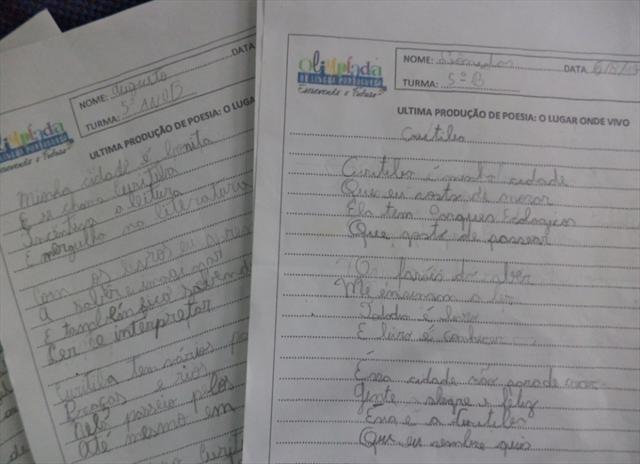 Olimpíada
DE LÍNGUA PORTUGUESA
Escrevendo o Futuro
NOME: Augusto DATA
TURMA: 5º ANO B
ULTIMA PRODUÇÃO DE POESIA: O LUGAR
Minha cidade é bonita
E se chama Curitiba
Incentiva a leitura
E mergulho na literatura
Com os livros eu
A saber e imaginar
E também fico sabendo
Ler e interpretar
Curitiba tem vários
Praças e rios
passeio pelos
Até mesmo em
NOME: DATA 6/8/
TURMA: 5º B
ULTIMA PRODUÇÃO DE POESIA: O LUGAR ONDE VIVO
Curitiba
Curitiba é minha cidade
Que eu gosto de morar
Ela tem Parques Ecológicos
Que gosto de passear
Os faróis do saber
Me ensinam a ler
é livro
E livro é conhecer
É
Essa cidade não para de
Gente alegre e feliz
Essa é a Curitiba
Que eu sempre quis